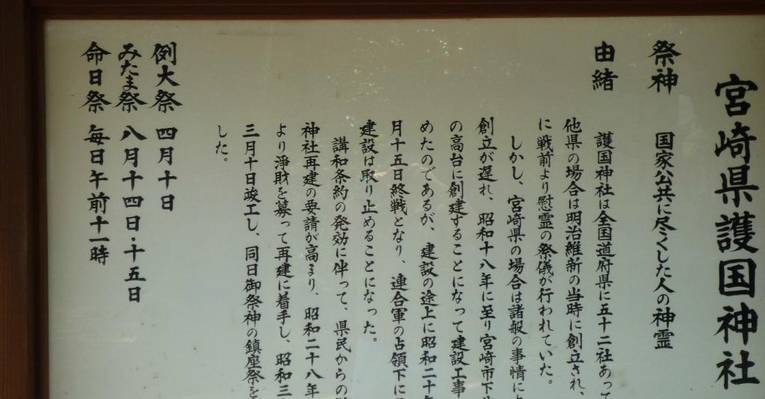 宮崎県護国神社
祭神　国家公共に尽くした人の神霊
由緒
護国神社は全国道府県に五十二社あって
他県の場合は明治維新の当時に創立され、
に戦前より慰霊の祭儀が行われていた。
しかし、宮崎県の場合は諸般の事情に
創立が遅れ、昭和十八年に至り宮崎市下
の高台に創建することになって建設工事
めたのであるが、建設の途上に昭和二十年
月十五日終戦となり、連合軍の占領下に
建設は取り止めることになった。
講和条約の発効に伴って、県民からの
神社再建の要請が高まり、昭和二十八年
より浄財を募って再建に着手し、昭和三
三月十日竣工し、同日御祭神の鎮座祭を
した。
例大祭　四月十日
みたま祭　八月十四日・十五日
命日祭　毎日午前十一時